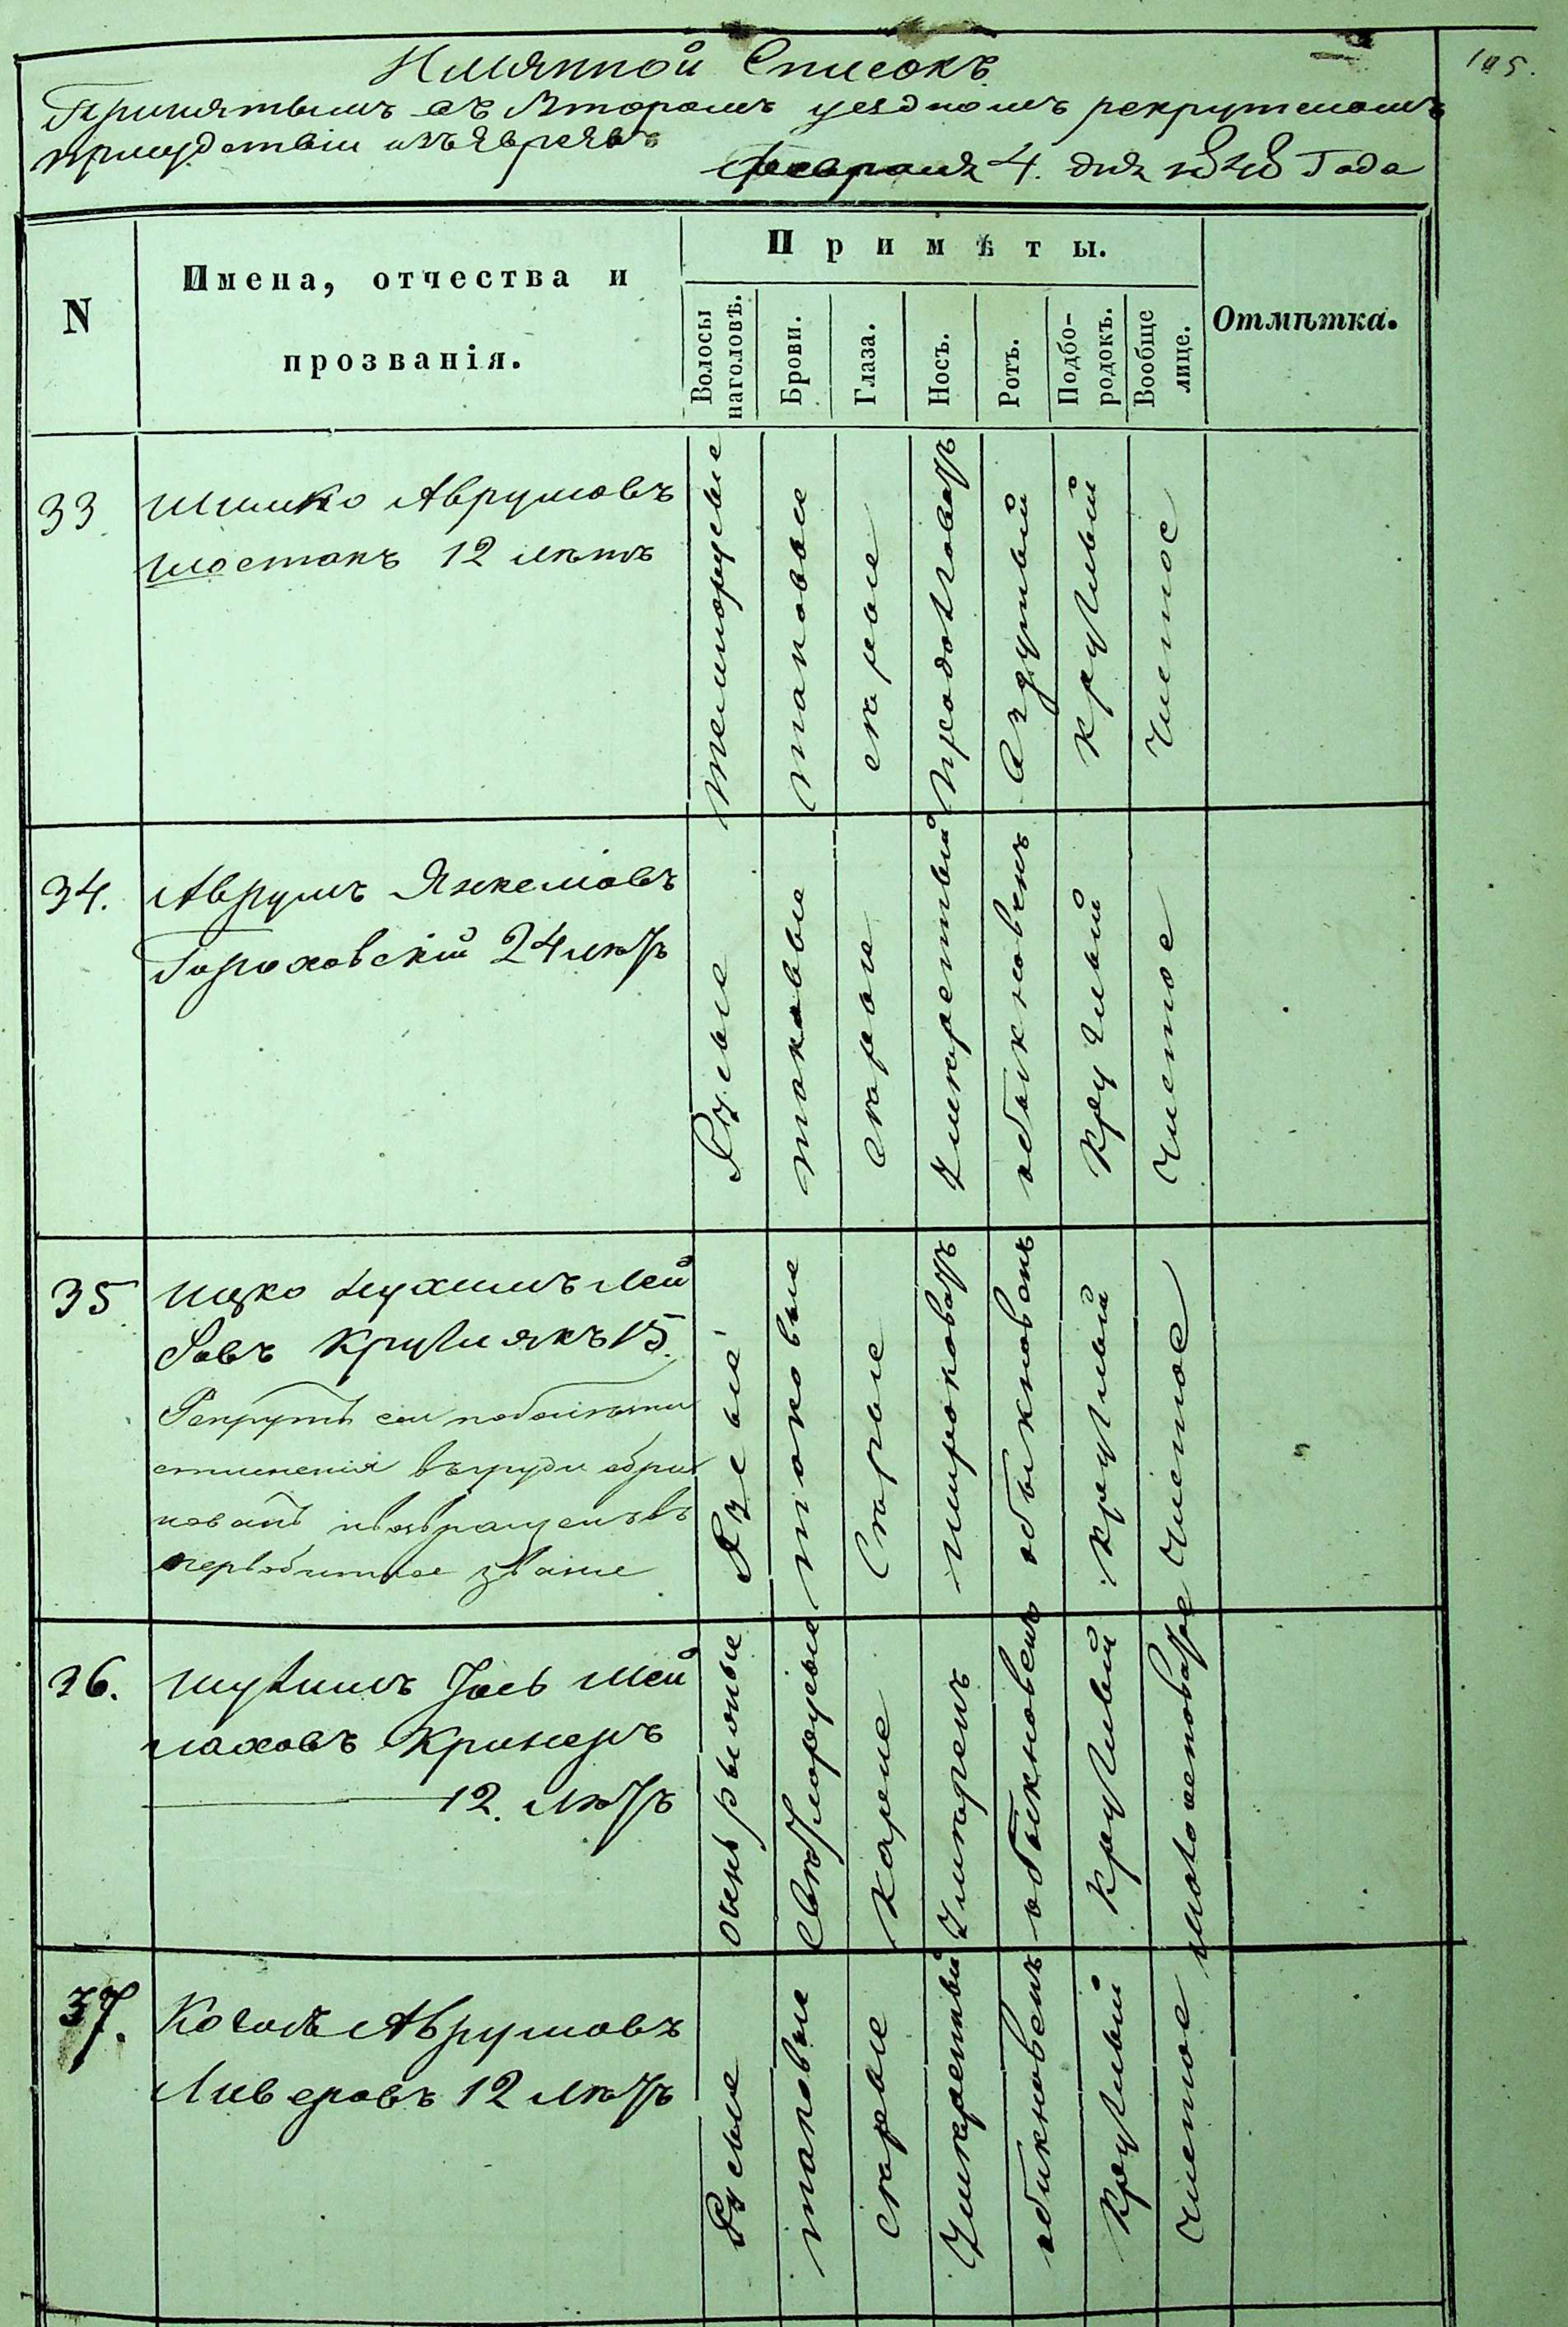 105.
Имянной Списокъ
Принятымъ въ Второмъ уездномъ рекрутскомъ
присудствіи изъ Евреевъ
Февраля 4. дня 1848 Года
N
Имена, отчества и
прозванія.
Примѣты.
Волосы
наголовѣ.
Брови.
Глаза.
Носъ.
Ротъ.
Подбо-
родокъ.
Вообще
лице.
Отмѣтка.
33
Шимко Аврумовъ
Шостакъ 12 лѣтъ
темнорусые
таковые
серые
продолговатъ
круглый
чистое
34.
Аврумъ Янкелiовъ
Гороховскій 24 лѣтъ
Русые
таковые
серые
умеренный
обыкновенъ
круглый
чистое
35
Ицко Нухимъ Лей
бовъ Круглякъ 15.
Рекрутъ сей
стесненія въ груди обра
кованъ и возвращенъ въ
первобытное званіе
Русые
таковые
серые
широковатъ
обыкновенъ
круглый
чистое
36.
Шулимъ Іось Мей
лаховъ Крижеръ
12. лѣтъ
очень рыжые
светлорусые
карие
умеренъ
обыкновенъ
круглый
37.
Когосъ Аврумовъ
Ливеровъ 12 лѣтъ
Русые
таковые
серые
умеренный
обыкновенъ
круглый
чистое